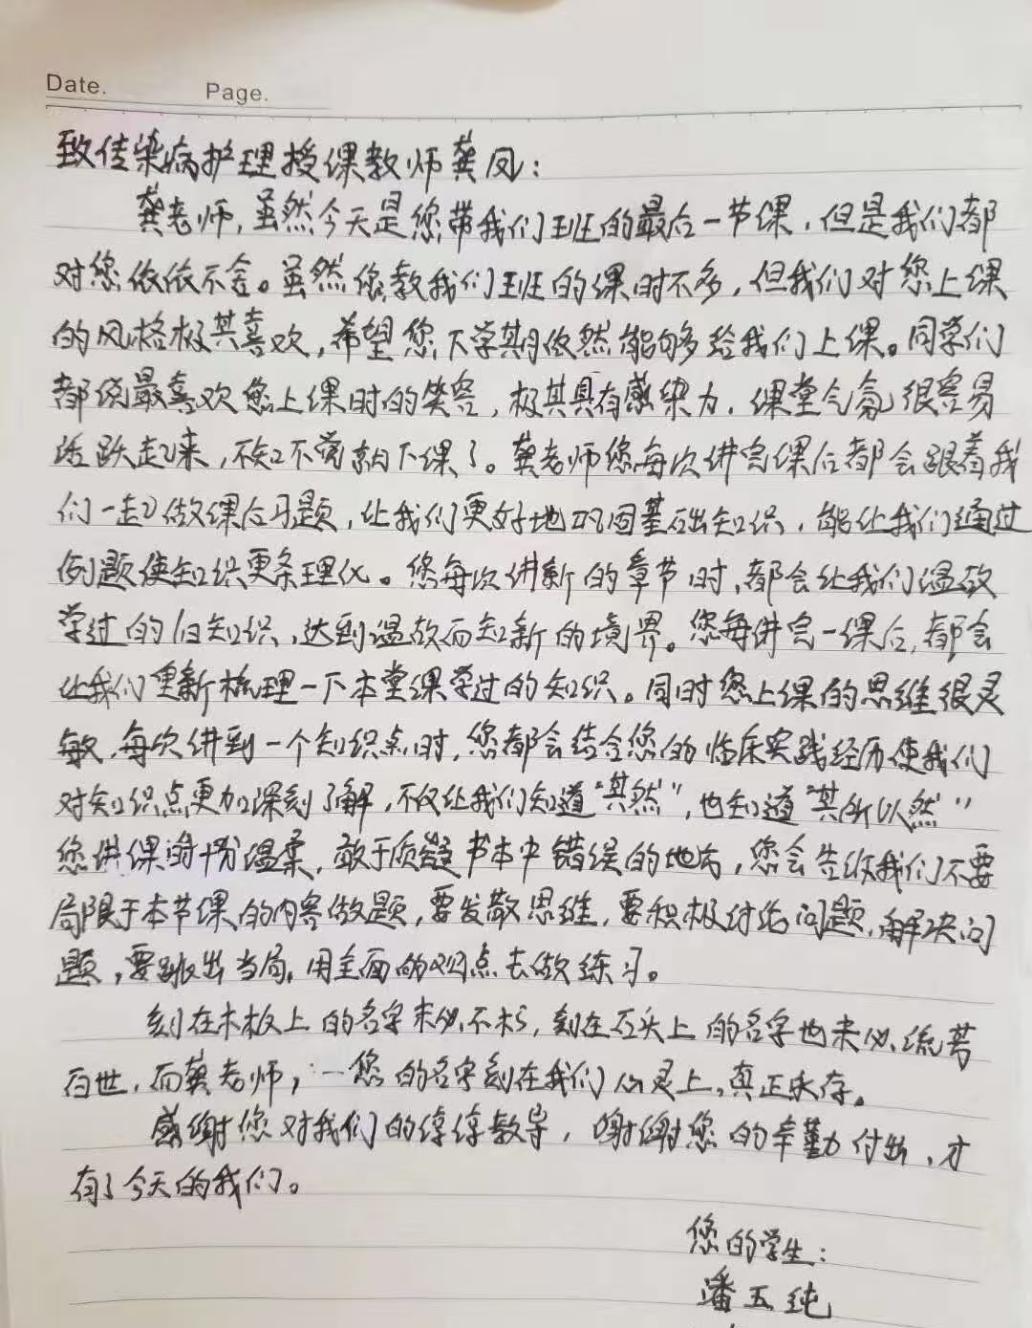 Date. Page.
致传染病护理授课教师龚凤：
龚老师，虽然今天是您带我们班的最后一节课，但是我们都
对您依依不舍。虽然您教我们班的课时不多，但我们对您上课
的风格极其喜欢，希望您下学期依然能够给我们上课。同学们
都说最喜欢您上课时的笑容，极其具有感染力，课堂气氛很容易
活跃起来，不知不觉就下课了。龚老师您每次讲完课后都会跟着我
们一起做课后习题，让我们更好地巩固基础知识，能让我们通过
例题使知识更条理化。您每次讲新的章节时，都会让我们温故
学过的旧知识，达到温故而知新的境界。您每讲完一课后，都会
让我们重新梳理一下本堂课学过的知识。同时您上课的思维很灵
敏，每次讲到一个知识点时，您都会结合您的临床实践经历使我们
对知识点更加深刻了解，不仅让我们知道“其然”，也知道“其所以然”
您讲课时十分温柔，敢于质疑书本中错误的地方，您会告诉我们不要
局限于本节课的内容做题，要发散思维，要积极讨论问题，解决问
题，要跳出当局，用全面的观点去做练习。
刻在木板上的名字未必不朽，刻在石头上的名字也未必流芳
百世，而龚老师，您的名字刻在我们心灵上，真正永存。
感谢您对我们的谆谆教导，谢谢您的辛勤付出，才
有了今天的我们。
您的学生：
潘五纯